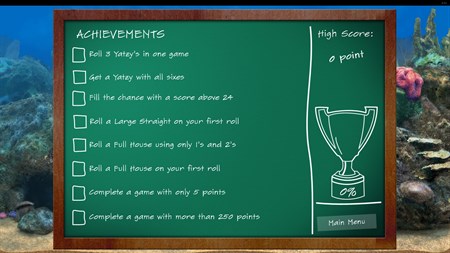 ACHIEVEMENTS
Roll 3 Yatzy's in one game
Get a Yatzy with all sixes
Fill the chance with a score above 24
Roll a Large Straight on your first roll
Roll a Full House using only 1's and 2's
Roll a Full House on your first roll
Complete a game with only 5 points
Complete a game with more than 250 points
High Score:
0 point
0%
Main Menu